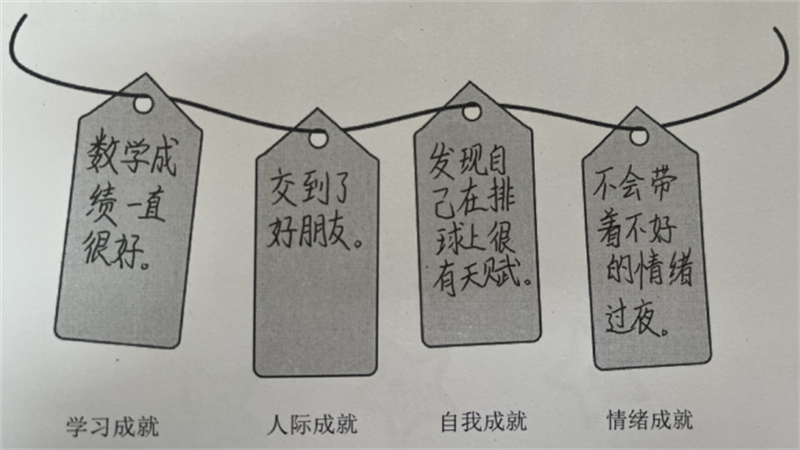 数学成
绩一直
很好。
交到了
好朋友。
发现自
己在排
球上很
有天赋。
不会带
着不好
的情绪
过夜。
学习成就
人际成就
自我成就
情绪成就